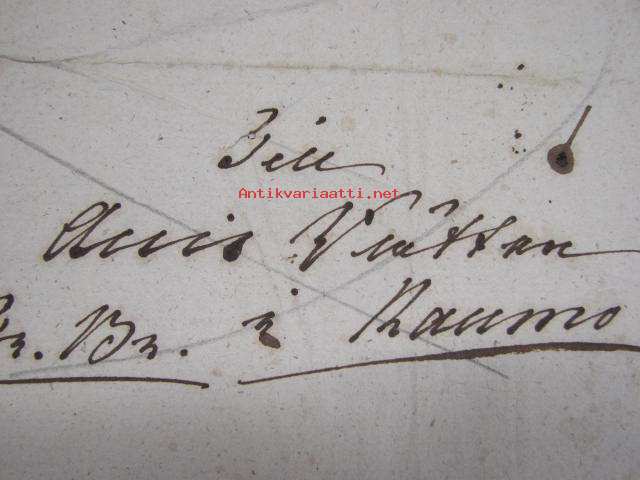 Till
Antikvariaatti.net
Rätten
Fr. Br. i Raumo